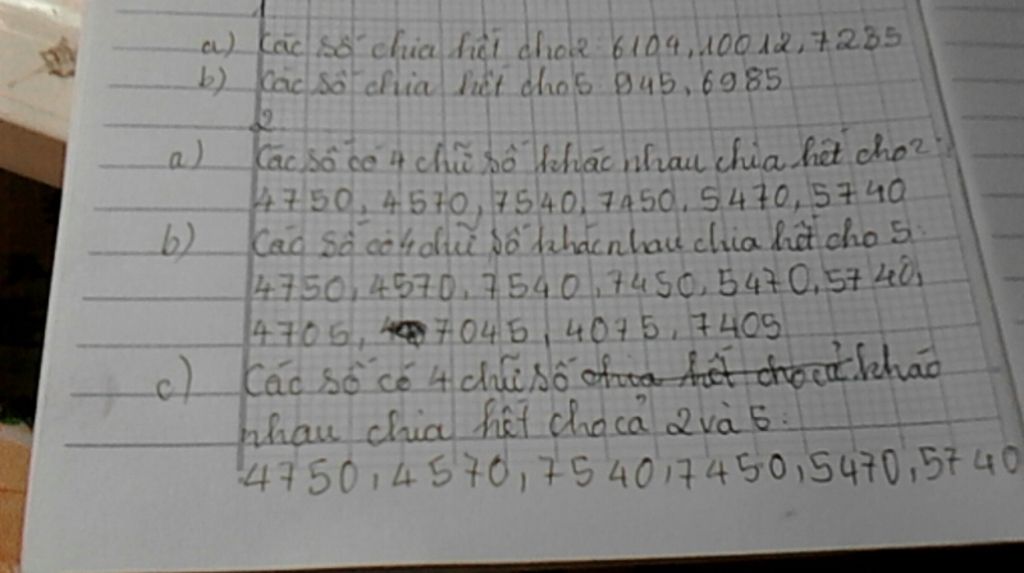 a) Các số chia hết cho 2: 6104, 10012, 7235
b) Các số chia hết cho 5 945, 6985
2
a) Các số có 4 chữ số khác nhau chia hết cho 2:
4750, 4570, 7540, 7450, 5470, 5740
b) Các số có 4 chữ số khác nhau chia hết cho 5:
4750, 4570, 7540, 7450, 5470, 5740,
4705, 7045, 4075, 7405
c) Các số có 4 chữ số chia hết cho cả khác
nhau chia hết cho cả 2 và 5:
4750, 4570, 7540, 7450, 5470, 5740